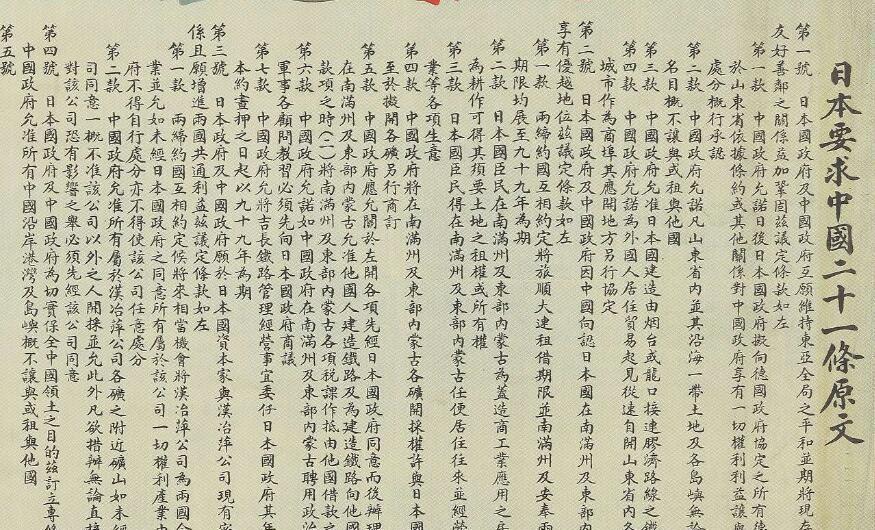 日本要求中國二十一條原文
第一號　日本國政府及中國政府互願維持東亞全局之平和並期將現在
友好善鄰之關係益加鞏固茲議定條款如左
第一款　中國政府允諾日後日本國政府擬向德國政府協定之所有德
於山東省依據條約或其他關係對中國政府享有一切權利利益讓與
處分概行承認
第二款　中國政府允諾凡山東省內並其沿海一帶土地及各島嶼無論
名目概不讓與或租與他國
第三款　中國政府允准日本國建造由烟台或龍口接連膠濟路線之鐵
第四款　中國政府允諾為外國人居住貿易起見從速自開山東省內各
城市作為商埠其應開地方另行協定
第二號　日本國政府及中國政府因中國向認日本國在南滿州及東部內
享有優越地位茲議定條款如左
第一款　兩締約國互相約定將旅順大連租借期限並南滿州及安奉兩
期限均展至九十九年為期
第二款　日本國臣民在南滿州及東部內蒙古為蓋造商工業應用之房
為耕作可得其須要土地之租權或所有權
第三款　日本國臣民得在南滿州及東部內蒙古任便居住往來並經營
業等各項生意
第四款　中國政府將在南滿州及東部內蒙古各礦開採權許與日本國
至於擬開各礦另行商訂
第五款　中國政府應允關於左開各項先經日本國政府同意而後辦理
在南滿州及東部內蒙古允准他國人建造鐵路及為建造鐵路向他國
款項之時(二)將南滿州及東部內蒙古各項稅課作抵由他國借款之
第六款　中國政府允諾如中國政府在南滿州及東部內蒙古聘用政治
軍事各顧問教習必須先向日本國政府商議
第七款　中國政府允將吉長鐵路管理經營事宜委任日本國政府其年
本約畫押之日起以九十九年為期
第三號　日本國政府及中國政府願於日本國資本家與漢冶萍公司現有密
係且願增進兩國共通利益茲議定條款如左
第一款　兩締約國互相約定俟將來相當機會將漢冶萍公司為兩國合
業並允如未經日本國政府之同意所有屬於該公司一切權利產業中
府不得自行處分亦不得使該公司任意處分
第二款　中國政府允准所有屬於漢冶萍公司各礦之附近礦山如未經
司同意一概不准該公司以外之人開採並允此外凡欲措辦無論直接
對該公司恐有影響之舉必須先經該公司同意
第四號　日本國政府及中國政府為切實保全中國領土之目的茲訂立專條
中國政府允准所有中國沿岸港灣及島嶼概不讓與或租與他國
第五號